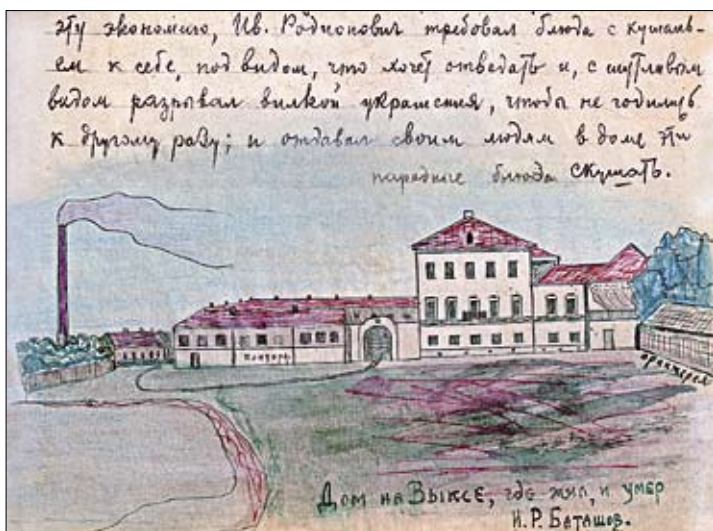 эту экономию, Ив. Родионович требовал блюда с кушань-
ем к себе, под видом, что хочет отведать и, с шутливым
видом разрывал вилкой украшения, чтобы не годились
к другому разу; и отдавал своим людям в доме эти
парадные блюда скушать.
контора
оранжерея
Дом на Выксе, где жил, и умер
И. Р. Баташов.